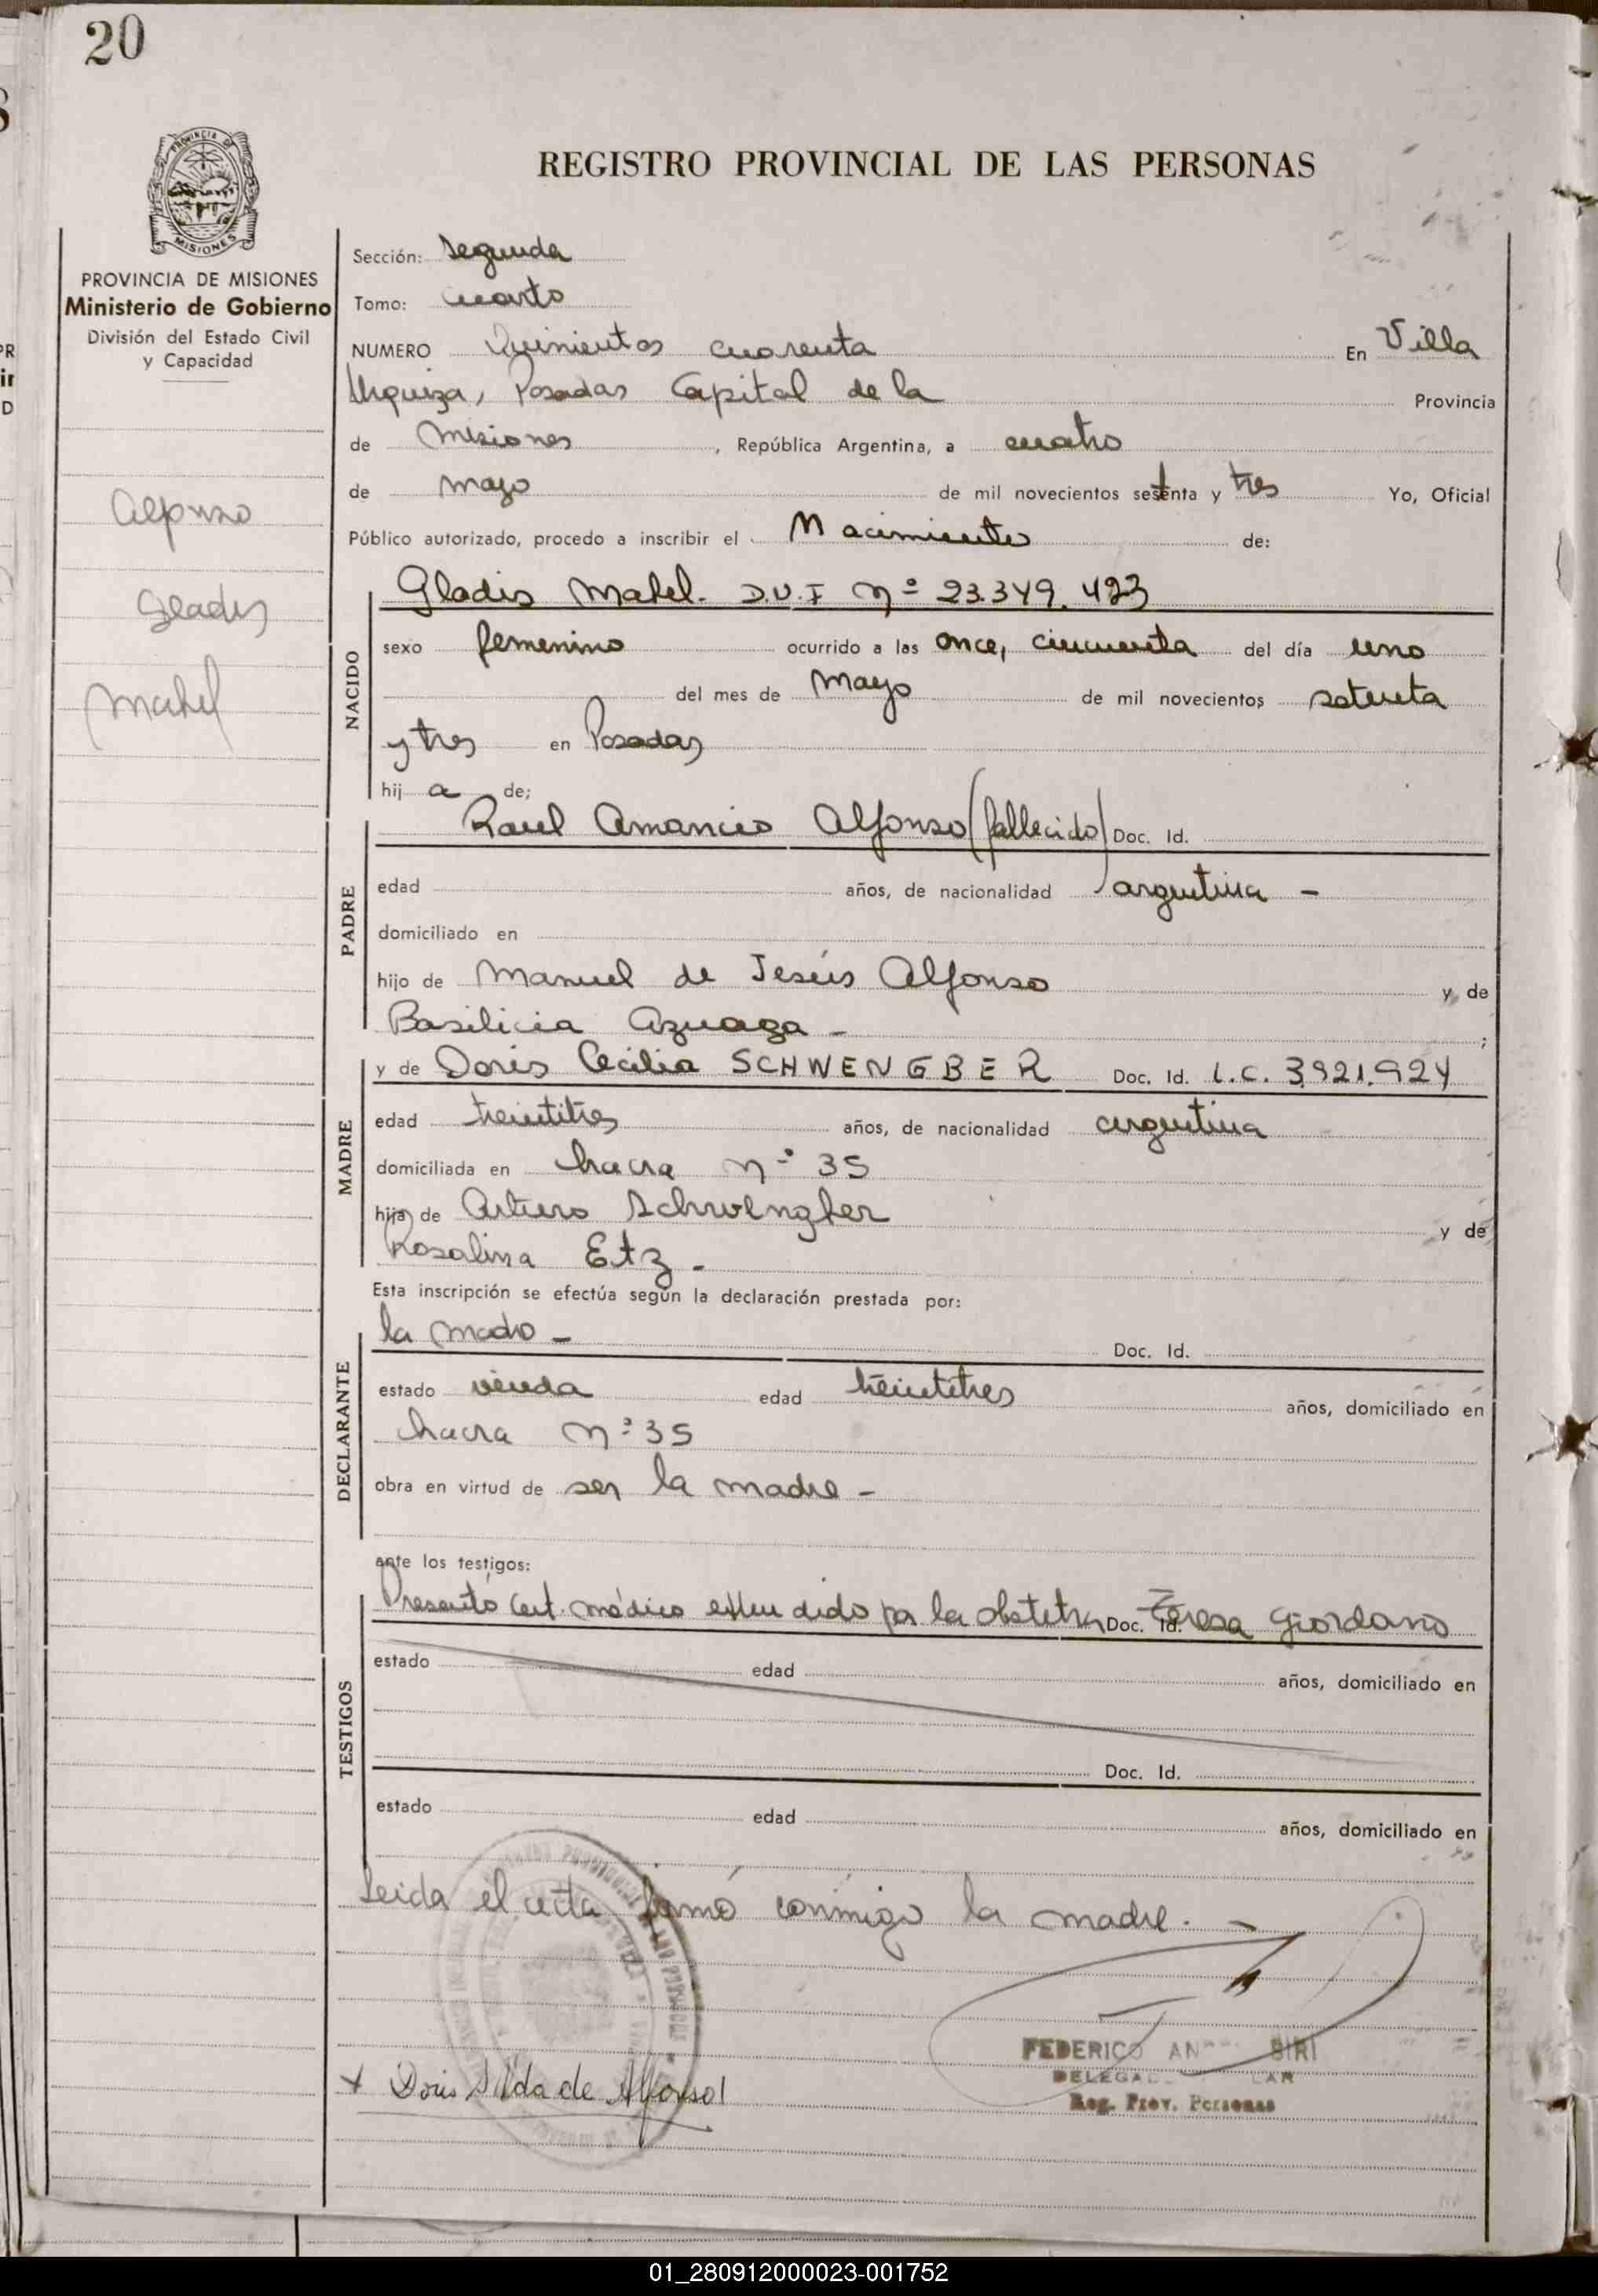 20
PROVINCIA DE
MISIONES
PROVINCIA DE MISIONES
Ministerio de Gobierno
División del Estado Civil
y Capacidad
Alfonso
Gladis
Mabel
REGISTRO PROVINCIAL DE LAS PERSONAS
Sección: Segunda
Tomo: Cuarto
NUMERO Quinientos cuarenta En Villa
Urquiza, Posadas Capital de la Provincia
de Misiones, República Argentina, a cuatro
de mayo de mil novecientos setenta y tres Yo, Oficial
Público autorizado, procedo a inscribir el Nacimiento de:
NACIDO
Gladis Mabel. D.U.I Nº 23.349.423
sexo femenino ocurrido a las once, cincuenta del día uno
del mes de Mayo de mil novecientos setenta
y tres en Posadas
hij a de;
PADRE
Raul Amancio Alfonso (fallecido) Doc. Id.
edad años, de nacionalidad argentina -
domiciliado en
hijo de Manuel de Jesús Alfonso y de
Basilicia Azuaga - ;
MADRE
y de Doris Cecilia SCHWENGBER Doc. Id. L.C. 3.921.924
edad treintitres años, de nacionalidad argentina
domiciliada en chacra Nº 35
hija de Arturo Schwengber y de
Rosalina Etz -
Esta inscripción se efectúa según la declaración prestada por:
DECLARANTE
la madre - Doc. Id.
estado viuda edad treintitres años, domiciliado en
chacra Nº 35
obra en virtud de ser la madre -
ante los testigos:
TESTIGOS
Presentó Cert. médico extendido por la obstetra Doc. Id. Teresa Giordano
estado edad años, domiciliado en
Doc. Id.
estado edad años, domiciliado en
Leida el acta firmó conmigo la madre. -
FEDERICO
Reg. Prov. Personas
+ Doris de Alfonso
01_280912000023-001752